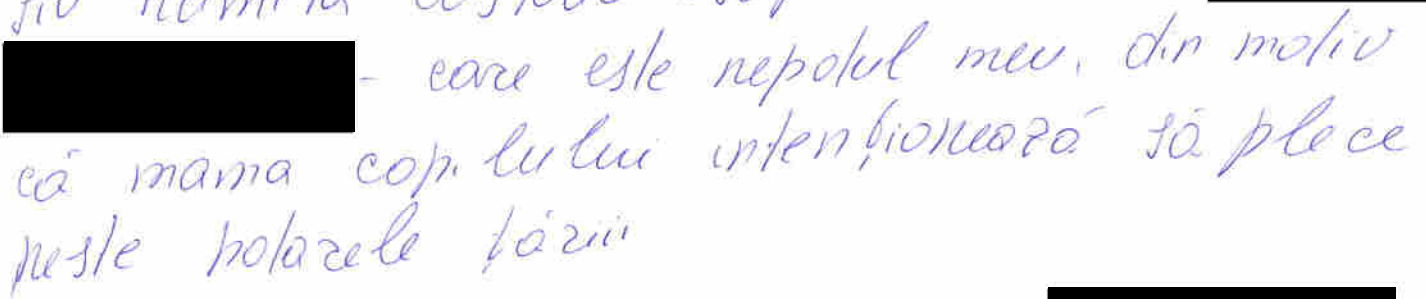 - care este nepotul meu, din motiv
că mama copilului intenționează să plece
peste hotarele țării